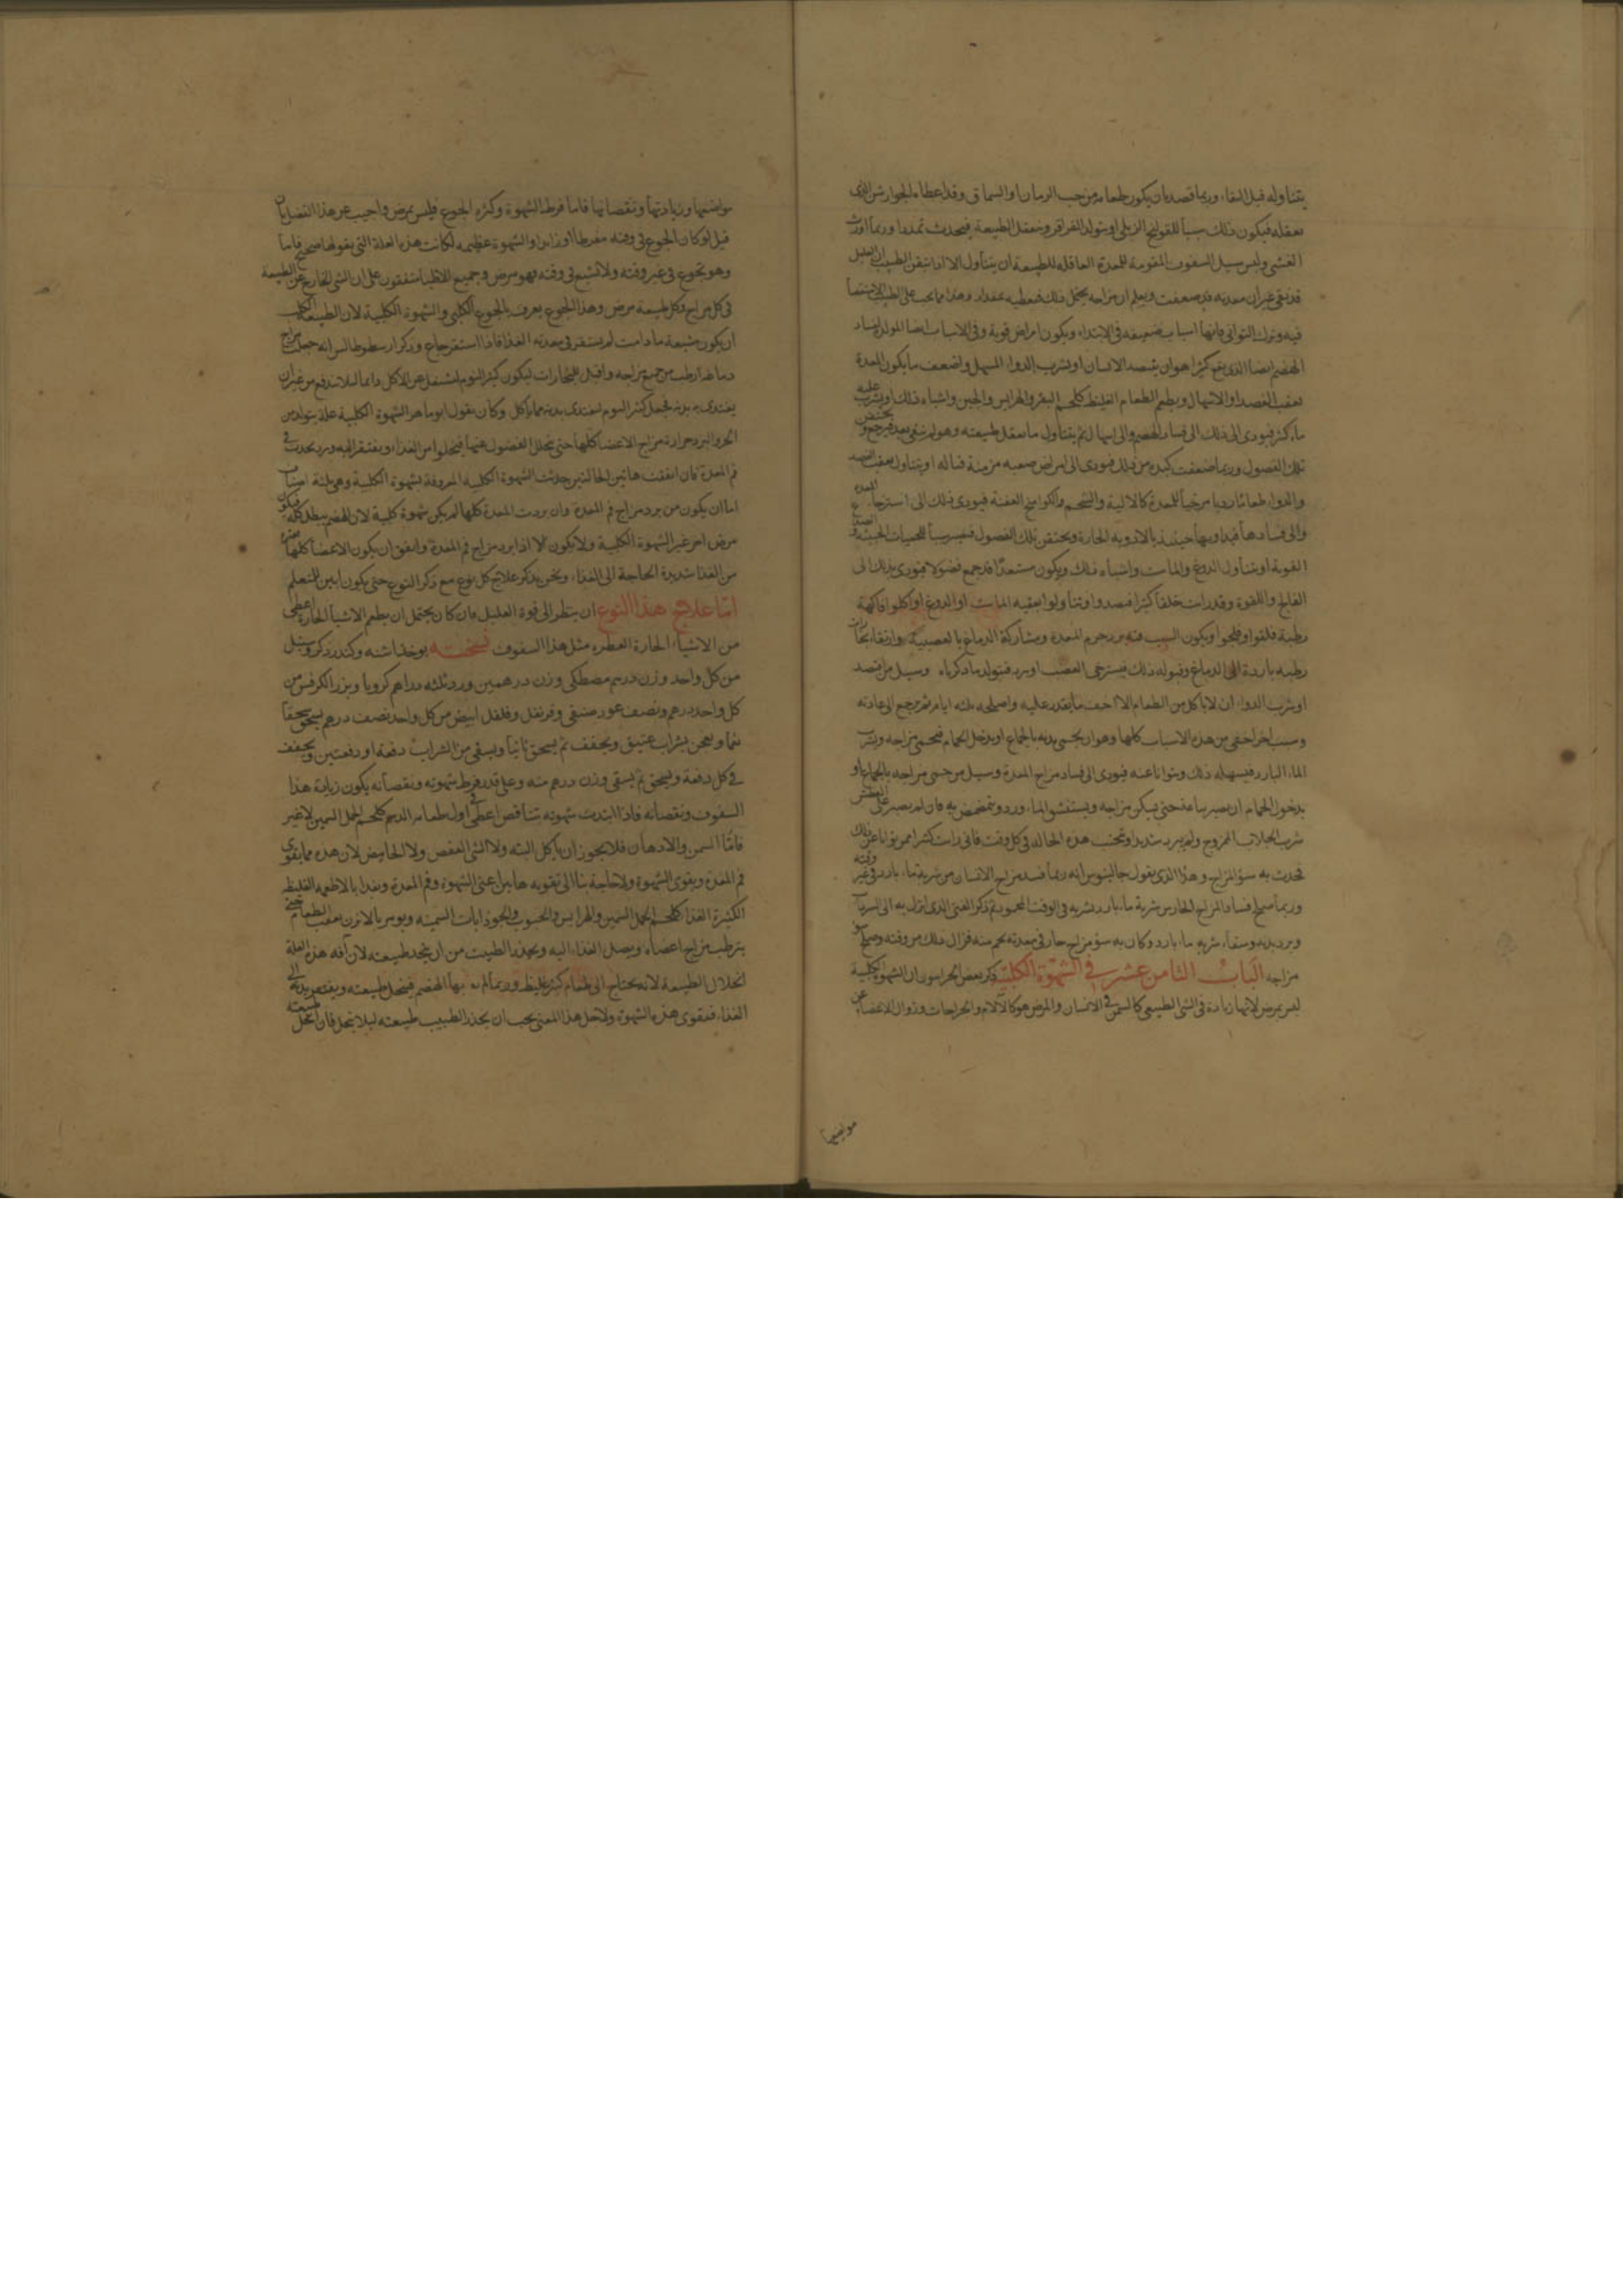 يتناوله قبل النقاء وربما قصد بان يكون طعامه من حب الرمان او السماق وقد اعطاه الجوارشن الذي
يعقله فيكون ذلك سببا للقولنج الزبلي او يتولد القراقر وينعقل الطبيعة فيحدث تمددا وربما اورث
الغشي وليس سبيل السفوف المقومة للمعدة العاقلة للطبيعة ان يتناول الا اذا تيقن الطبيب ان العليل
قد نقي غير ان معدته قد ضعفت ويعلم ان مزاجه يحتمل ذلك فيعطيه بمقدار وهذا مما يجب على الطبيب
فيه وترك التواني فانها اسباب ضعيفة في الابتداء ويكون امراض قوية وفي الاسباب ايضا المولد لفساد
الهضم ايضا الذي يقع كثيرا هو ان يفتصد الانسان او يشرب الدواء المسهل واضعف ما يكون المعدة
بعقب الفصد او الاسهال ويطعم الطعام الغليظ كلحم البقر والهرايس والجبن واشباه ذلك ويشرب عليه
ماء كثير فيودي الى ذلك الى فساد الهضم والى اسهال ثم يتناول ما يعقل طبيعته وهو لم ينقى بعد فيرجع ويحتقن
تلك الفضول وربما ضعفت كبده من ذلك فيودي الى امراض صعبة مزمنة قتاله او يتناول بعقب الفصد
والدواء طعاما رديا مرخيا للمعدة كالالية والشحم والكوامخ العفنة فيودي ذلك الى استرخاء المعدة
والى فسادها فيداويها حينئذ بالادوية الحارة ويحتقن تلك الفضول فيصير سببا للحميات الخبيثة
القوية او يتناول الدوغ والماست واشباه ذلك ويكون مستعدا قد جمع فضولا فيودي ذلك الى
الفالج واللقوة وقد رايت خلقا كثيرا افتصدوا وتناولوا بعقبه الماست او الدوغ او اكلوا فاكهة
رطبة فلقوا وفلجوا ويكون السبب فيه برد جرم المعدة ومشاركة الدماغ بالعصبية وارتقاء بخارات
رطبة باردة الى الدماغ وقبوله ذلك فيسترخي العصب او يبرد فيتولد ما ذكرناه وسبيل من فصد
او شرب الدواء ان لا ياكل من الطعام الا اخف ما يقدر عليه واصلحه ثلثة ايام ثم يرجع الى عادته
وسبب اخر اخفى من هذه الاسباب كلها وهو ان يحمى بدنه بالجماع او يدخل الحمام فيحمى مزاجه ويشرب
الماء البارد فيسهله ذلك ويتوانا عنه فيودي الى فساد مزاج المعدة وسبيل من حمى مزاجه بالجماع او
بدخول الحمام ان يصبر ساعة حتى يسكن مزاجه ويستنشق الماء ورد ويتمضمض به فان لم يصبر على العطش
شرب الجلاب الممزوج ولم يبرد شديدا وتجنب هذه الحالة في كل وقت فاني رايت كثيرا ممن توانا عن ذلك
فحدث به سوء المزاج وهذا الذي يقول جالينوس انه ربما فسد مزاج الانسان من شربة ماء بارد في غير وقته
وربما صلح فساد المزاج الحار من شربة ماء بارد يشربه في الوقت المحمود ثم ذكر الفتى الذي انزل به الى السرداب
وبرد بدنه وسقاه شربة ماء بارد وكان به سوء مزاج حار في معدته يحم منه فزال ذلك من وقته وصلح سوء
مزاجه الباب الثامن عشر في الشهوة الكلبية ذكر بعض الحرانيين ان الشهوة الكلبية
ليس بمرض لانها زيادة في الشي الطبيعي كالسمن في الانسان والمرض هو كالآلام والجراحات وزوال الاعضاء عن
مواضعها
مواضعها وزيادتها ونقصانها فاما فرط الشهوة وكثرة الجوع فليس بمرض واجيب عن هذا الفصل بان
قيل لو كان الجوع في وقته مفرطا او زايدا والشهوة عظيمه لكانت هذه العلة التي يقولها صحيح فاما
وهو يجوع في غير وقته ولا يشبع في وقته فهو مرض وجميع الاطبا متفقون على ان الشي الخارج عن الطبيعة
في كل مزاج وكل طبيعة مرض وهذا الجوع يعرف بالجوع الكلبي والشهوة الكلبية لان الطبيعة الكلب
ان يكون شبعة ما دامت لم يستقر في معدته الغذا فاذا استقر جاع وذكر ارسطوطاليس انه جعل مزاج
دماغه ارطب من جميع مزاجه واقبل للبخارات ليكون كثير النوم ليشتغل عن الاكل دايما ليلا يندفع من غير ان
يغتذي به بدنه فجعل كثير النوم ليغتذي بدنه مما ياكل وكان يقول ابو ماهر الشهوة الكلبية علة يتولد من
الحر والبرد حرارة مزاج الاعضا كلها حتى يتحلل الفضول عنها فيخلوا من الغذاء ويفتقر اليه وبرد يحدث في
فم المعدة فان اتفقت هاتين الحالتين حدثت الشهوة الكلبية المعروفة بشهوة الكلبية وهي ثلثة اسباب
اما ان يكون من برد مزاج فم المعدة وان بردت المعدة كلها لم يكن شهوة كلبية لان الهضم يبطل كله فيكون
مرض اخر غير الشهوة الكلبية ولا يكون الا اذا برد مزاج فم المعدة واتفق ان يكون الاعضا كلها
من الغذا شديدة الحاجة الى الغذاء ونحن نذكر علاج كل نوع مع ذكر النوع حتى يكون ابين للمتعلم
اما علاج هذا النوع ان ينظر الى قوة العليل فان كان يحتمل ان يطعم الاشياء الحارة اعطى
من الاشياء الحارة العطره مثل هذا السفوف نسخته يوخذ اشنه وكندر ذكر وسنبل
من كل واحد وزن درهم مصطكى وزن درهمين ورد ثلثه دراهم كرويا وبزر الكرفس من
كل واحد درهم ونصف عود صنفي وقرنفل وفلفل ابيض من كل واحد نصف درهم يسحق سحقا
ناعما ويعجن بشراب عتيق ويجفف ثم يسحق ثانيا ويسقى من الشراب دفعة او دفعتين ويجفف
في كل دفعة ويسحق ثم يسقى وزن درهم منه وعلى قدر فرط شهوته ونقصانه يكون زيادة هذا
السفوف ونقصانه فاذا ابتدت شهوته تتناقص اعطى في اول طعامه الدسم كلحم الحمل السمين لا غير
فاما السمن والادهان فلا يجوز ان ياكل البته ولا الشي العفص ولا الحامض لان هذه مما يقوي
فم المعدة ويقوي الشهوة ولا حاجة بنا الى تقوية هاتين اعني الشهوة وفم المعدة ويغذا بالاطعمه الغليظه
الكثيرة الغذاء كلحم الحمل السمين والهرايس والخبيص والجوذابات السمينه ويومر بالابزن بعقب الطعام حتى
يترطب مزاج اعضاءه ويصل الغذاء اليه ويحذر الطبيب من ان ينحل طبيعته لان آفة هذه العلة
انحلال الطبيعة لانه يحتاج الى طعام كثير غليظ وربما لم يتهيأ الهضم فينحل طبيعته ويفتقر بدنه الى
الغذاء فيقوى هذه الشهوة ولاجل هذا المعنى يجب ان يحذر الطبيب طبيعته ليلا ينحل فان انحل طبيعته